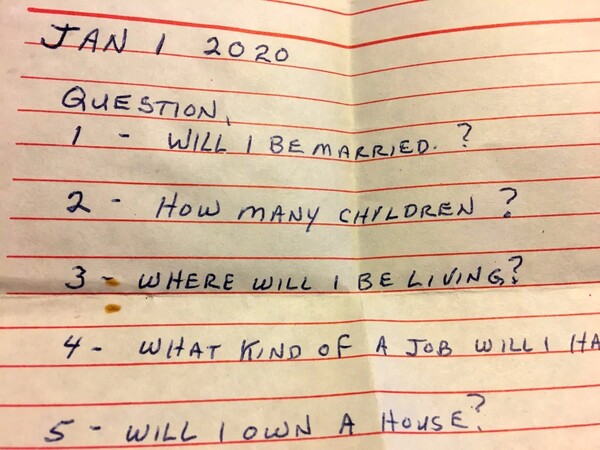 JAN 1 2020
QUESTION,
1 - WILL I BE MARRIED. ?
2 - HOW MANY CHYLDREN ?
3 - WHERE WILL I BE LIVING?
4 - WHAT KIND OF A JOB WILL I HA
5 - WILL I OWN A HOUSE?